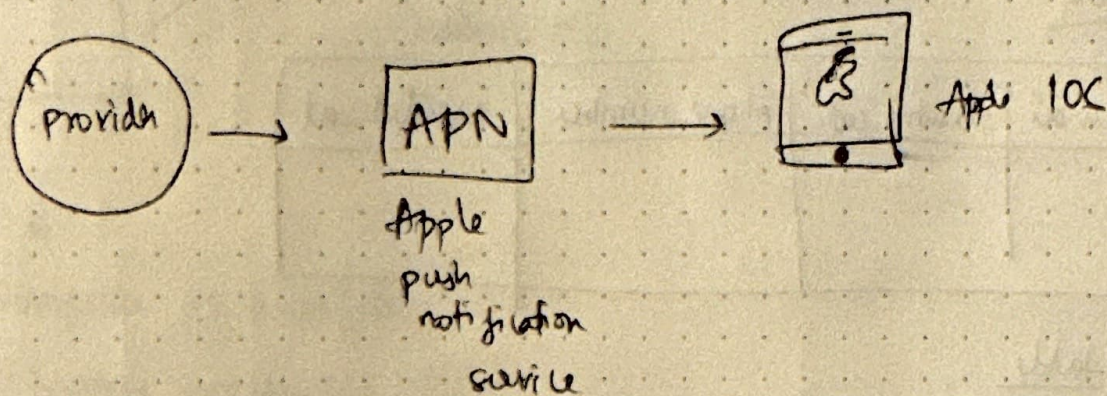 provider
APN
Apple
push
notification
service
Apple IOS